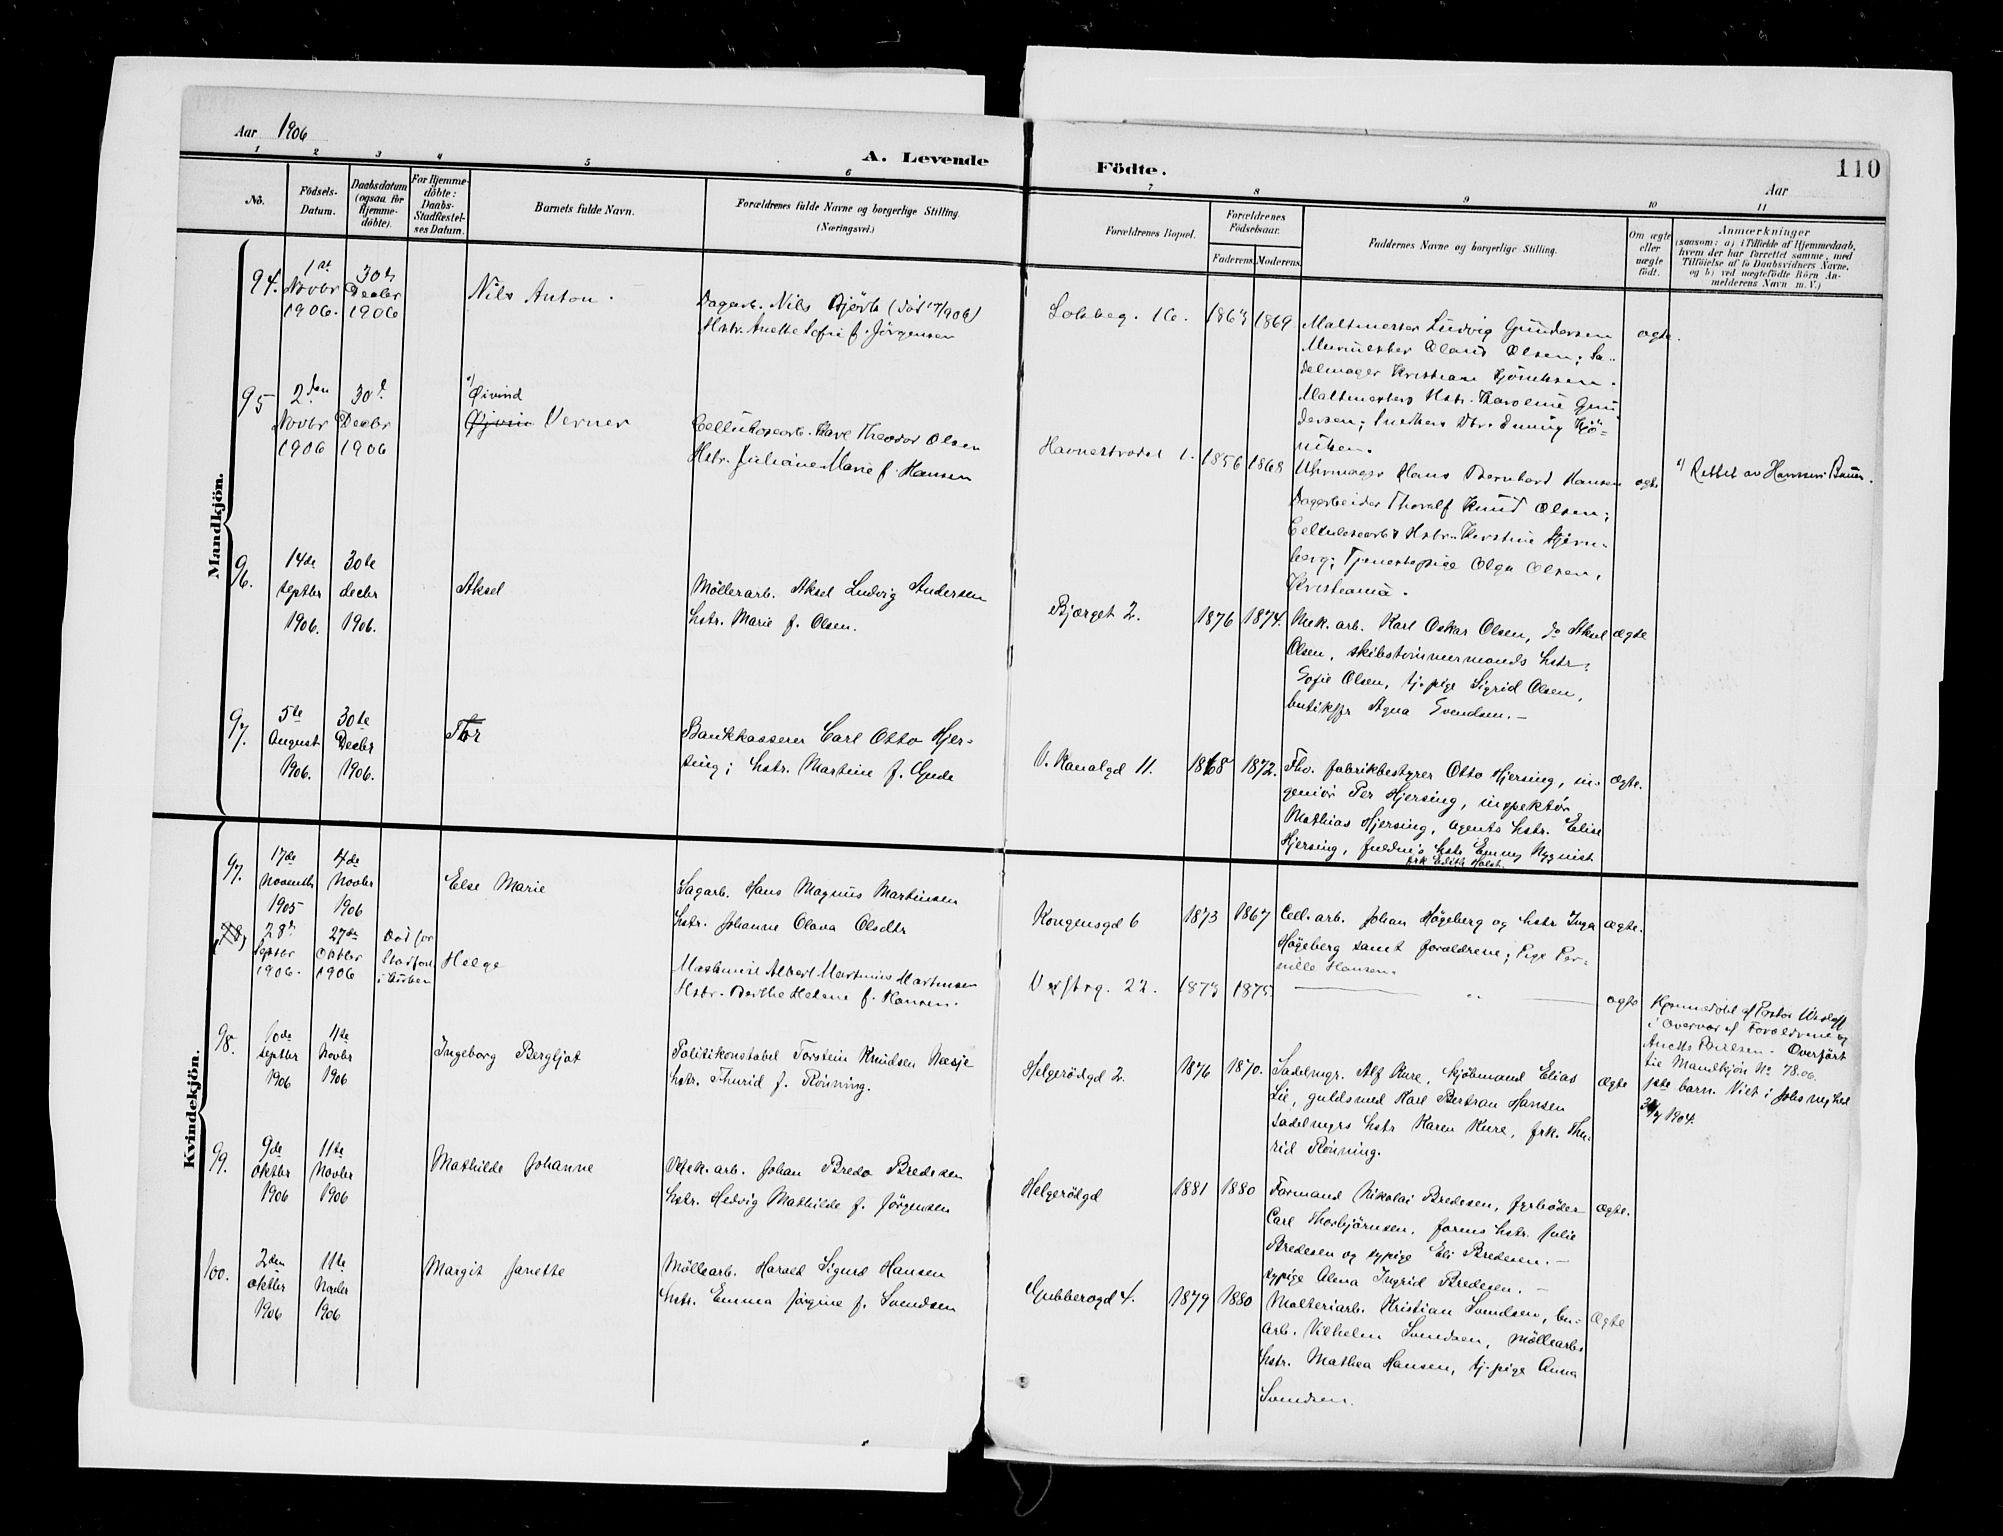 Aar 1906
A. Levende
Födte.
110
Aar
1 2 3 4 5 6 7 8 9 10 11
No.
Födsels-
Datum.
Daabsdatum
(ogsaa for
Hjemme-
döbte).
For Hjemme-
döbte:
Daabs-
Stadfæstel-
ses Datum.
Barnets fulde Navn.
Forældrenes fulde Navne og borgerlige Stilling.
(Næringsvei.)
Forældrenes Bopæl.
Forældrenes
Födselsaar.
Faderens.
Moderens.
Faddernes Navne og borgerlige Stilling.
Om ægte
eller
uægte
födt.
Anmærkninger
(saasom: a) i Tilfælde af Hjemmedaab,
hvem der har forrettet samme, med
Tilföielse af to Daabsvidners Navne,
og b) ved uægtefödte Börn An-
melderens Navn m. V.)
Mandkjön.
94.
1ste
Novbr
1906.
30te
Decbr
1906
Nils Anton.
Dagarb. Nils Bjørb (død /1906)
Hstr. Anette Sofie f. Jörgensen
16.
1863
1869
Maltmester Ludvig Gundersen
Murmester Olaus Olsen; Sa-
delmager Kristian
Maltmesters Hstr. Karoline Gun
dersen;
ægte.
95
2den
Novbr
1906
30te
Decbr
1906
a)
Øivind
Verner
Cellulosearb. Karl Theodor Olsen
Hstr. Juliane Marie f. Hansen
Havnestrædet 1.
1856
1868
Uhrmager Hans Bernhard Hansen
Dagarbeider Thoralf Knud Olsen;
Cellulosearbs Hstr. Kirstine Stjern-
berg; Tjenestepige Olga Olsen,
Kristiania.
ægte
a) Rettet av
96.
14de
septbr
1906.
30te
decbr
1906.
Aksel
Møllerarb. Aksel Ludvig Andersen
hstr. Marie f. Olsen.
Bjærget 2.
1876
1874.
Mek. arb. Karl Oskar Olsen, do Aksel
Olsen, skibstømmermands hstr.
Sofie Olsen, tj. pige Sigrid Olsen,
butikfr Agna Svendsen.-
ægte
97.
5te
August
1906.
30te
Decbr
1906.
Thor
Bankkasserer Carl Otto Hjer-
sing; hstr. Martine f. Gude
V. Kanalgd 11.
1868
1872.
Fhv. fabrikbestyrer Otto Hjersing, in-
geniör Per Hjersing, inspektör
Mathias Hjersing, agents hstr. Elise
Hjersing, hstr Emmy Nyquist
frk Edith Holst.
ægte.
Kvindekjön.
97.
17de
Novembr
1905
4de
Novbr
1906
Else Marie
Sagarb. Hans Magnus Martinsen
hstr. Johanne Olava Olsdtr
Kongensgd 6
1873
1867
Cell. arb. Johan Högeberg og hstr Inga
Högeberg samt forældrene; Pige Per-
nille Hansen.
ægte.
(78)
28de
Septbr
1906.
27de
Oktbr
1906
Død før
Stadfæst
Helge
Maskinist Albert Martinius Martinsen
Hstr. Berthe Helene f. Hansen.
Værftsg. 22.
1873
1875
ægte
Hjemmedøbt af Pastor
i Overvær af Forældrene og
Overført
til Mandkjön No 78.06.
98.
10de
septbr
1906
11te
Novbr
1906
Ingeborg Bergljot
Politikonstabel Torstein Knudsen Næsje
hstr. Thurid f. Rönning.
Helgerödgd 2.
1876
1870.
Sadelmgr. Alf Kure, kjöbmand Elias
Lie, guldsmed Karl Bertran Hansen
sadelmgrs hstr Karen Kure, frk. Thu-
rid Rönning.
ægte
1ste barn. Viet i
1904.
99.
9de
oktbr
1906
11te
Novbr
1906
Mathilde Johanne
Mek. arb. Johan Bredo Bredesen
hstr. Hedvig Mathilde f. Jörgensen
Helgerödgd
1881
1880
Formand Nikolai Bredesen, fyrböder
Carl Thorbjörnsen, forms hstr. Julie
Bredesen og sypige Eli Bredesen.-
sypige Alma Ingrid Bredesen.-
ægte.
100.
2den
oktbr
1906
11te
Novbr
1906
Margit Janette
Möllearb. Harald Sigurd Hansen
hstr. Emma Jörgine f. Svendsen
Gubberogd 4.
1879
1880
Malteriarb. Kristian Svendsen, bu-
arb. Vilhelm Svendsen, möllearbs
hstr. Mathea Hansen, tj. pige Anna
Svendsen.
Ægte